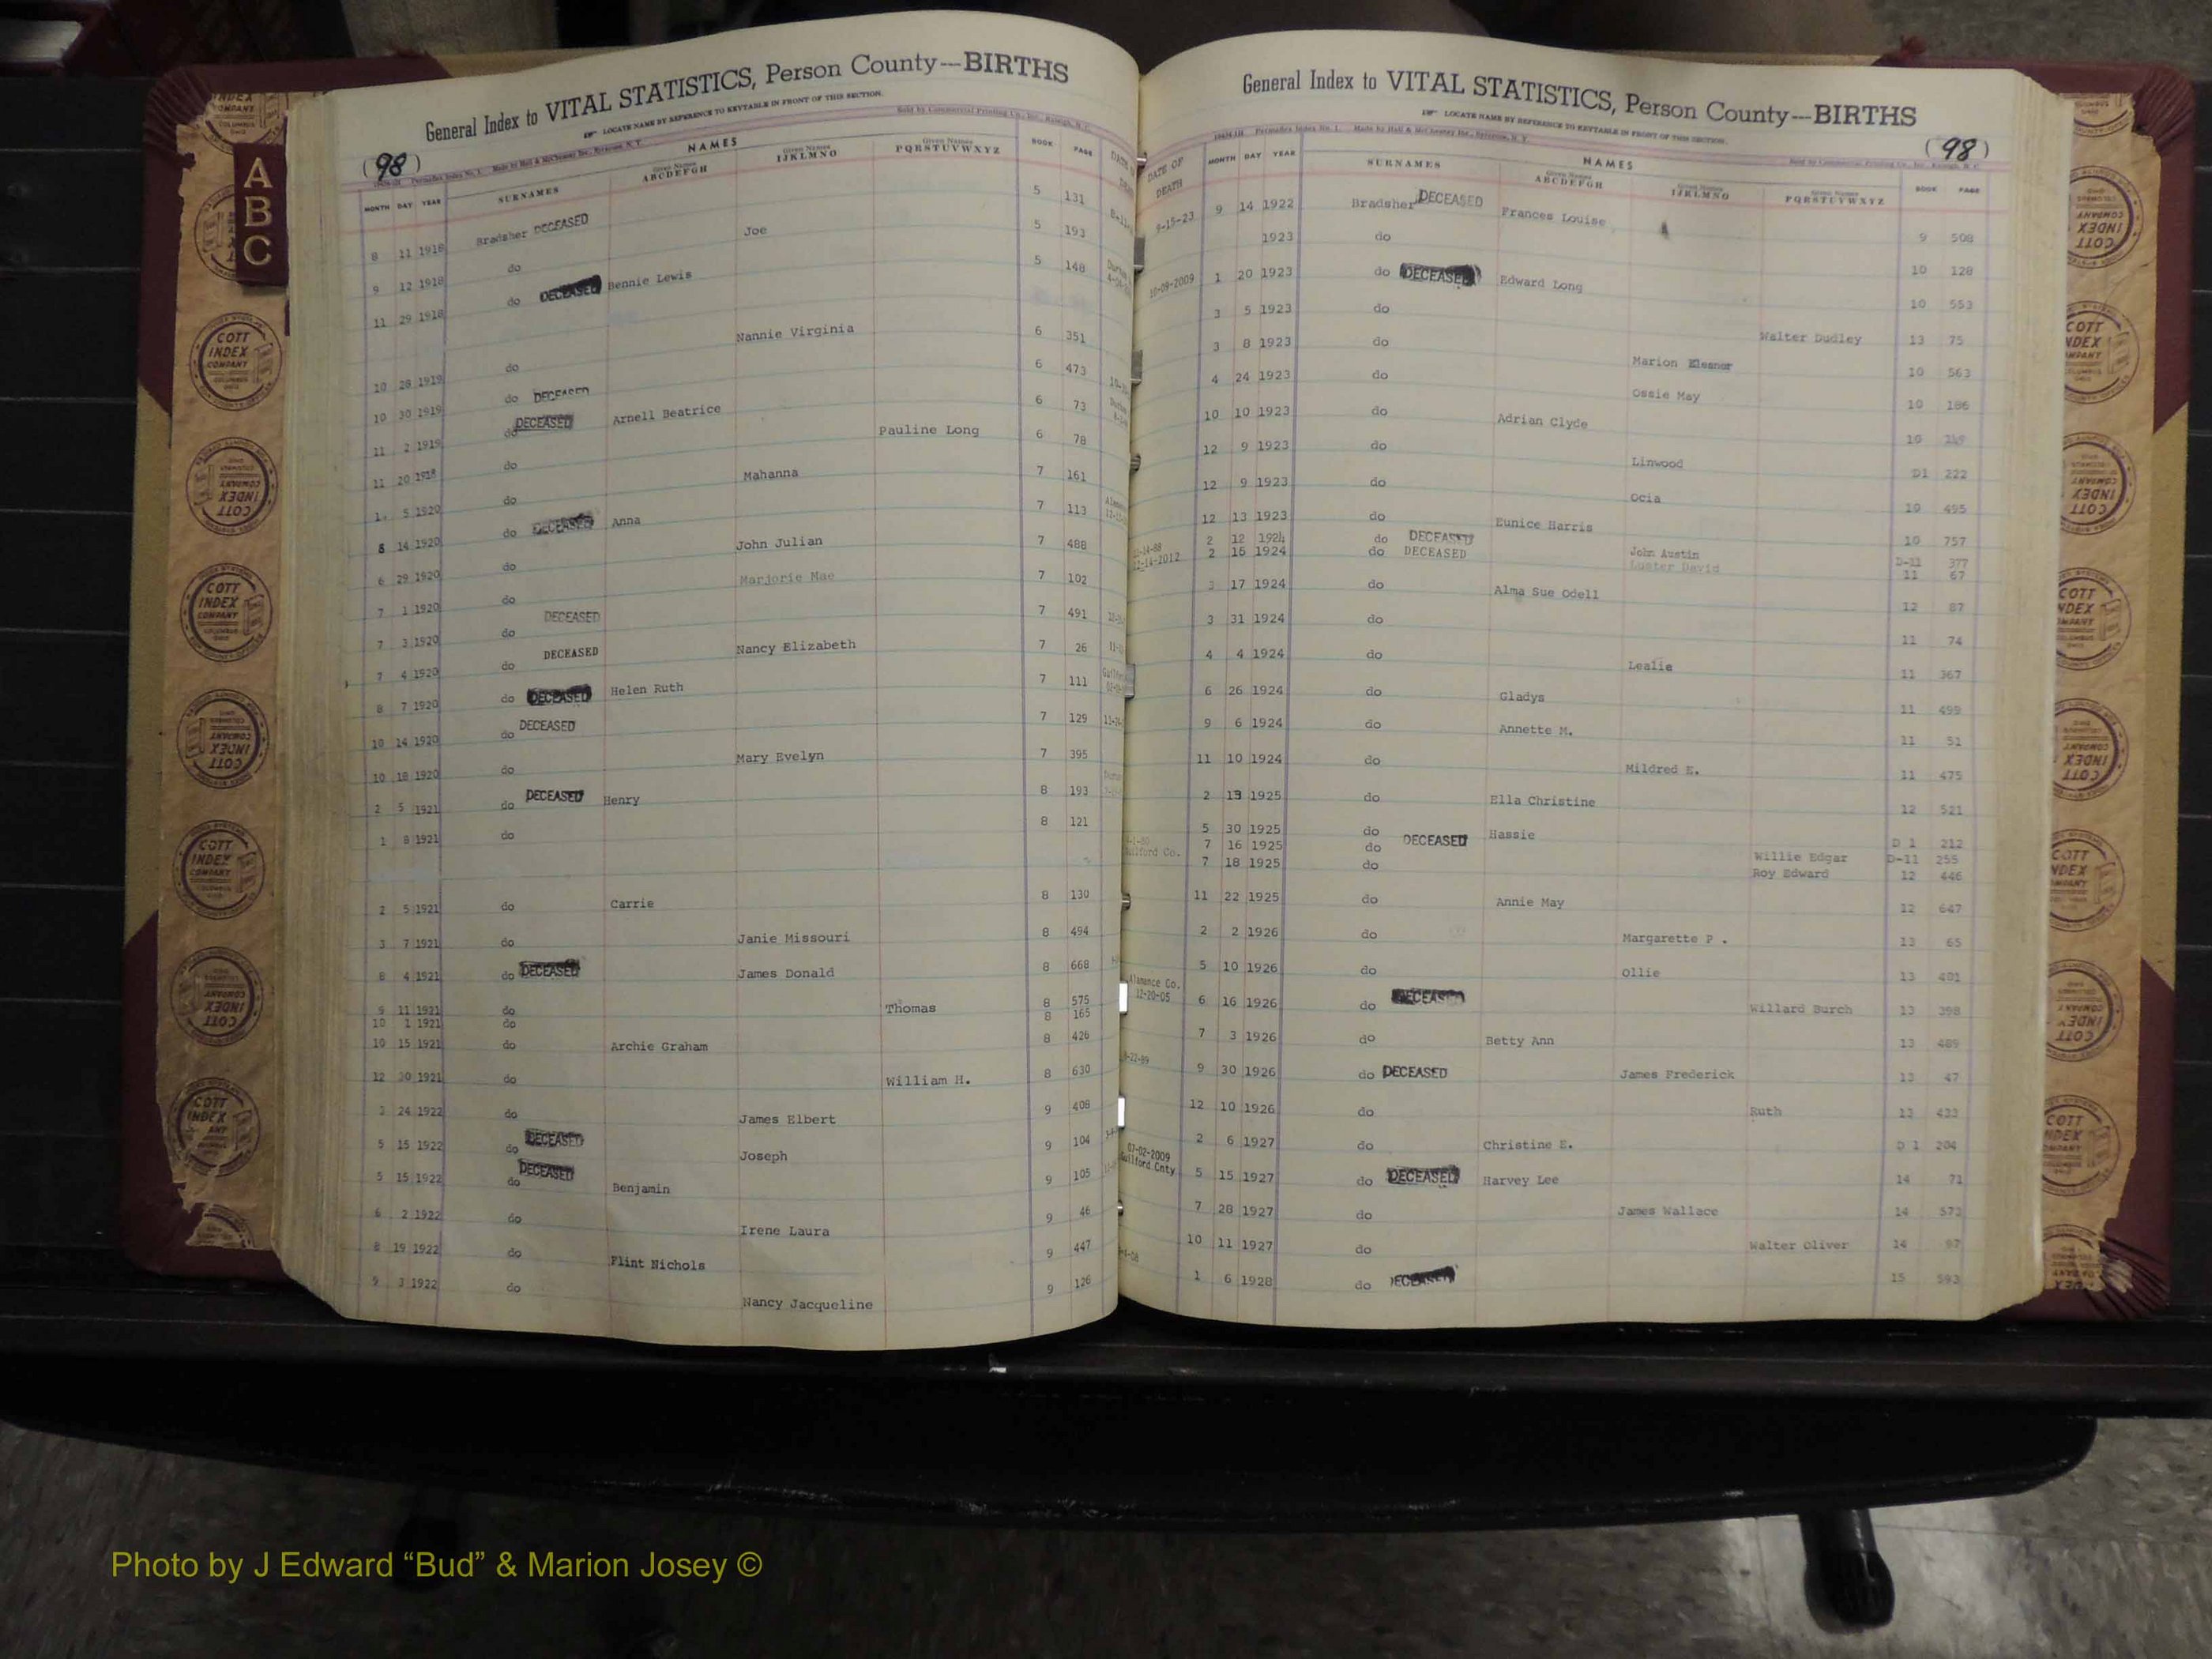 General Index to VITAL STATISTICS, Person County---BIRTHS
LOCATE NAME BY REFERENCE TO KEYTABLE IN FRONT OF THIS SECTION.
(98)
NAMES
MONTH DAY YEAR SURNAMES Given Names ABCDEFGH Given Names IJKLMNO Given Names PQRSTUVWXYZ BOOK PAGE
8 11 1918 Bradsher DECEASED Joe 5 131
9 12 1918 do 5 193
11 29 1918 do DECEASED Bennie Lewis 5 148
10 28 1919 do Nannie Virginia 6 351
10 30 1919 do DECEASED 6 473
11 2 1919 do DECEASED Arnell Beatrice 6 73
11 20 1918 do Pauline Long 6 78
1 5 1920 do Mahanna 7 161
8 14 1920 do DECEASED Anna 7 113
6 29 1920 do John Julian 7 488
7 1 1920 do Marjorie Mae 7 102
7 3 1920 do DECEASED 7 491
7 4 1920 do DECEASED Nancy Elizabeth 7 26
8 7 1920 do DECEASED Helen Ruth 7 111
10 14 1920 do DECEASED 7 129
10 18 1920 do Mary Evelyn 7 395
2 5 1921 do DECEASED Henry 8 193
1 8 1921 do 8 121
2 5 1921 do Carrie 8 130
3 7 1921 do Janie Missouri 8 494
8 4 1921 do DECEASED James Donald 8 668
9 11 1921 do Thomas 8 575
10 1 1921 do 8 165
10 15 1921 do Archie Graham 8 426
12 30 1921 do William H. 8 630
3 24 1922 do James Elbert 9 408
5 15 1922 do DECEASED Joseph 9 104
5 15 1922 do DECEASED Benjamin 9 105
6 2 1922 do Irene Laura 9 46
8 19 1922 do Flint Nichols 9 447
9 3 1922 do Nancy Jacqueline 9 126
General Index to VITAL STATISTICS, Person County---BIRTHS
LOCATE NAME BY REFERENCE TO KEYTABLE IN FRONT OF THIS SECTION.
(98)
NAMES
DATE OF DEATH MONTH DAY YEAR SURNAMES Given Names ABCDEFGH Given Names IJKLMNO Given Names PQRSTUVWXYZ BOOK PAGE
9-15-23 9 14 1922 Bradsher DECEASED Frances Louise 9 508
1923 do 10 128
10-09-2009 1 20 1923 do DECEASED Edward Long 10 553
3 5 1923 do Walter Dudley 13 75
3 8 1923 do Marion Eleanor 10 563
4 24 1923 do Ossie May 10 186
10 10 1923 do Adrian Clyde 10
12 9 1923 do Linwood D1 222
12 9 1923 do Ocia 10 495
12 13 1923 do Eunice Harris 10 757
2 12 1924 do DECEASED John Austin D-11 377
12-14-2012 2 16 1924 do DECEASED Luster David 11 67
3 17 1924 do Alma Sue Odell 12 87
3 31 1924 do 11 74
4 4 1924 do Leslie 11 367
6 26 1924 do Gladys 11 499
9 6 1924 do Annette M. 11 51
11 10 1924 do Mildred E. 11 475
2 13 1925 do Ella Christine 12 521
5 30 1925 do Hassie D 1 212
Guilford Co. 7 16 1925 do DECEASED Willie Edgar D-11 255
7 18 1925 do Roy Edward 12 446
11 22 1925 do Annie May 12 647
2 2 1926 do Margarette P. 13 65
5 10 1926 do Ollie 13 401
Alamance Co. 12-20-05 6 16 1926 do DECEASED Willard Burch 13 398
7 3 1926 do Betty Ann 13 489
9 30 1926 do DECEASED James Frederick 13 47
12 10 1926 do Ruth 13 433
2 6 1927 do Christine E. D 1 204
07-02-2009 Guilford Cnty 5 15 1927 do DECEASED Harvey Lee 14 71
7 28 1927 do James Wallace 14 573
10 11 1927 do Walter Oliver 14 97
1 6 1928 do DECEASED 15 593
A
B
C
COTT INDEX COMPANY
Photo by J Edward “Bud” & Marion Josey ©